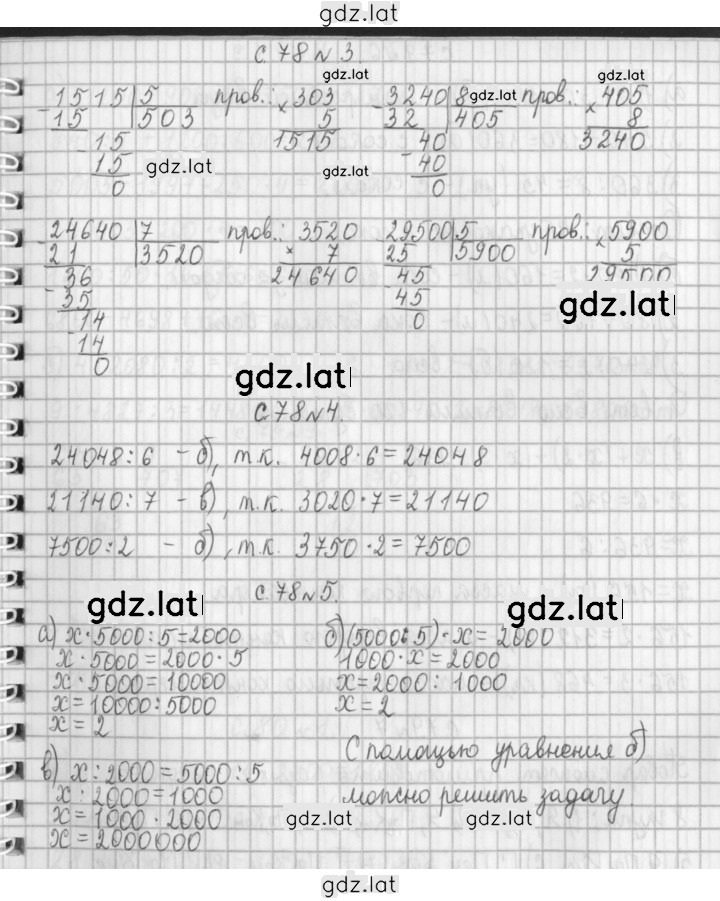 gdz.lat
с. 78 № 3
gdz.lat gdz.lat
1515 | 5 пров.: × 303 3240 | 8 gdz.lat пров.: × 405
- 15 | 503 5 - 32 | 405 8
- 15 1515 40 3240
15 gdz.lat gdz.lat - 40
0 0
24640 | 7 пров.: 3520 29500 | 5 пров.: 5900
- 21 | 3520 × 7 - 25 | 5900 × 5
36 24640 45 29500
- 35 - 45 gdz.lat
14 0
- 14
0 gdz.lat
с. 78 № 4.
24048 : 6 – б), т.к. 4008 · 6 = 24048
21140 : 7 – в), т.к. 3020 · 7 = 21140
7500 : 2 – б), т.к. 3750 · 2 = 7500
с. 78 № 5.
gdz.lat gdz.lat
а) x · 5000 : 5 = 2000
x · 5000 = 2000 · 5
x · 5000 = 10000
x = 10000 : 5000
x = 2
б) (5000 : 5) · x = 2000
1000 · x = 2000
x = 2000 : 1000
x = 2
в) x : 2000 = 5000 : 5
x : 2000 = 1000
x = 1000 · 2000
x = 2000000
С помощью уравнения б)
можно решить задачу
gdz.lat gdz.lat
gdz.lat